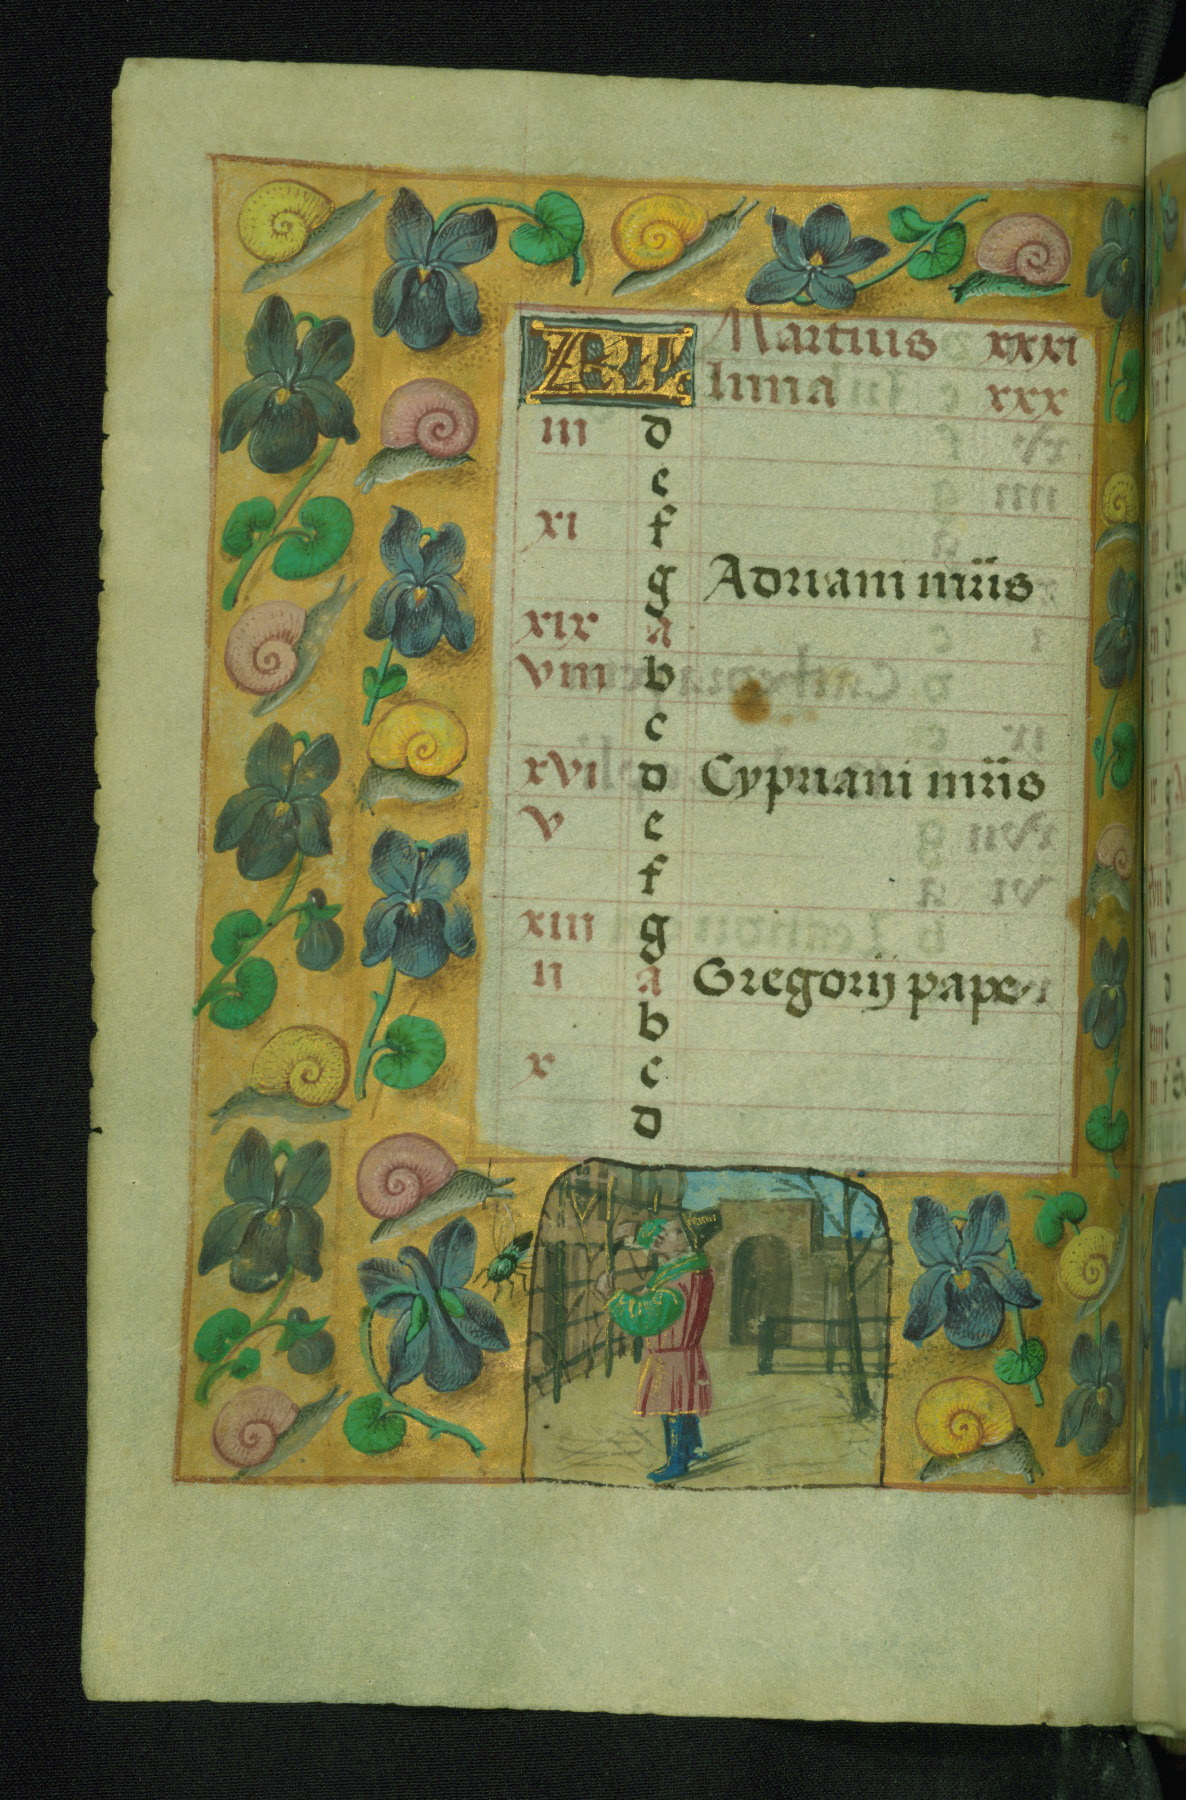 KL Martius xxxi
luna xxx
iii d
e
xi f
g Adriani mr̄is
xix a
viii b
c
xvi d Cypriani mr̄is
v e
f
xiii g
ii a Gregorij pape
b
x c
d